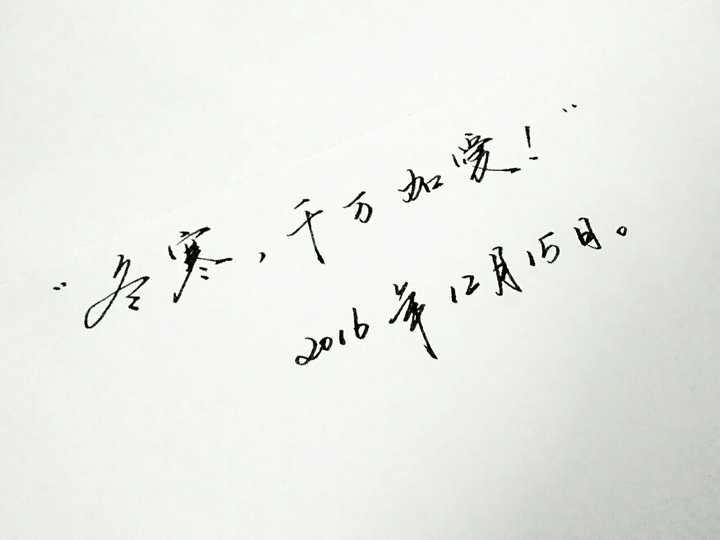 “冬寒，千万加爱！”
2016年12月15日。